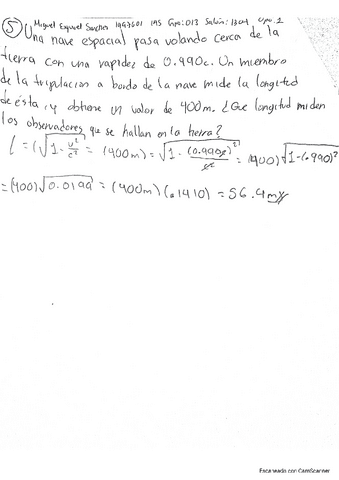 Miguel Esquivel Sanchez 1997601 IAS Gpo: 013 Salón: 1304 Opo. 2
⑤ Una nave espacial pasa volando cerca de la
tierra con una rapidez de 0.990c. Un miembro
de la tripulacion a bordo de la nave mide la longitud
de ésta, y obtiene un valor de 400m. ¿Que longitud miden
los observadores que se hallan en la tierra?
l = l√1-u²/c² = (400m) = √1-(0.990c)²/c² = (400)√1-(.990)²
= (400)√0.0199 = (400m)(.1410) = 56.4m
Escaneado con CamScanner